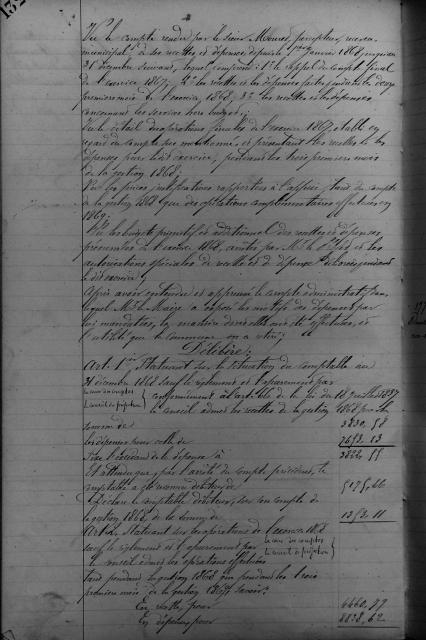 Vu le compte rendu par le Sieur Mouret, percepteur, receveur
municipal, de ses recettes et dépenses depuis le 1er janvier 1868, jusqu'au
31 décembre suivant, lequel comprend : 1° le rappel du compte final
de l'exercice 1867; 2° les recettes et les dépenses faites pendant les douze
premiers mois de l'exercice 1868; 3° les recettes et les dépenses
concernant les services hors budget;
Vu le détail des opérations finales de l'exercice 1867, établi en
regard du compte sus mentionné, et présentant les recettes et les
dépenses pour ledit exercice, pendant les trois premiers mois
de la gestion 1868;
Vu les pièces justificatives rapportées à l'appui, tant du compte
de la gestion 1868 que des opérations complémentaires effectuées en
1869.
Vu les budgets primitif et additionnel des recettes et dépenses
présumées de l'exercice 1868, arrêtés par Mr le Préfet, et les
autorisations spéciales de recette et de dépense délivrées pendant
le dit exercice;
Après avoir entendu et approuvé le compte administratif dans
lequel Mr le Maire a exposé les motifs des dépenses par
lui mandatées, la manière dont elles ont été effectuées, et
l'utilité que la commune en a retiré;
Délibère:
Art. 1er Statuant sur la situation du comptable au
31 décembre 1868 sauf le règlement et l'apurement par
la cour des comptes
le conseil de préfecture
conformément à l'article de la loi du 18 juillet 1837
le conseil admet les recettes de la gestion 1868 pour la
somme de 3830, 58
les dépenses pour celle de 7653. 13
Fixe l'excédant de la dépense à 3822, 55
Et attendu que, par l'arrêté du compte précédent, le
comptable a été reconnu débiteur de 5175, 66
Déclare le comptable débiteur, sur son compte de
la gestion 1868, de la somme de 1353. 11
Art. 2. Statuant sur les opérations de l'exercice 1868
sauf le règlement et l'apurement par
la cour des comptes
le conseil de préfecture
le conseil admet les opérations effectuées
tant pendant la gestion 1868 que pendant les trois
premiers mois de la gestion 1869, Savoir:
En recette, pour 6660, 97
En dépense, pour 8838, 62